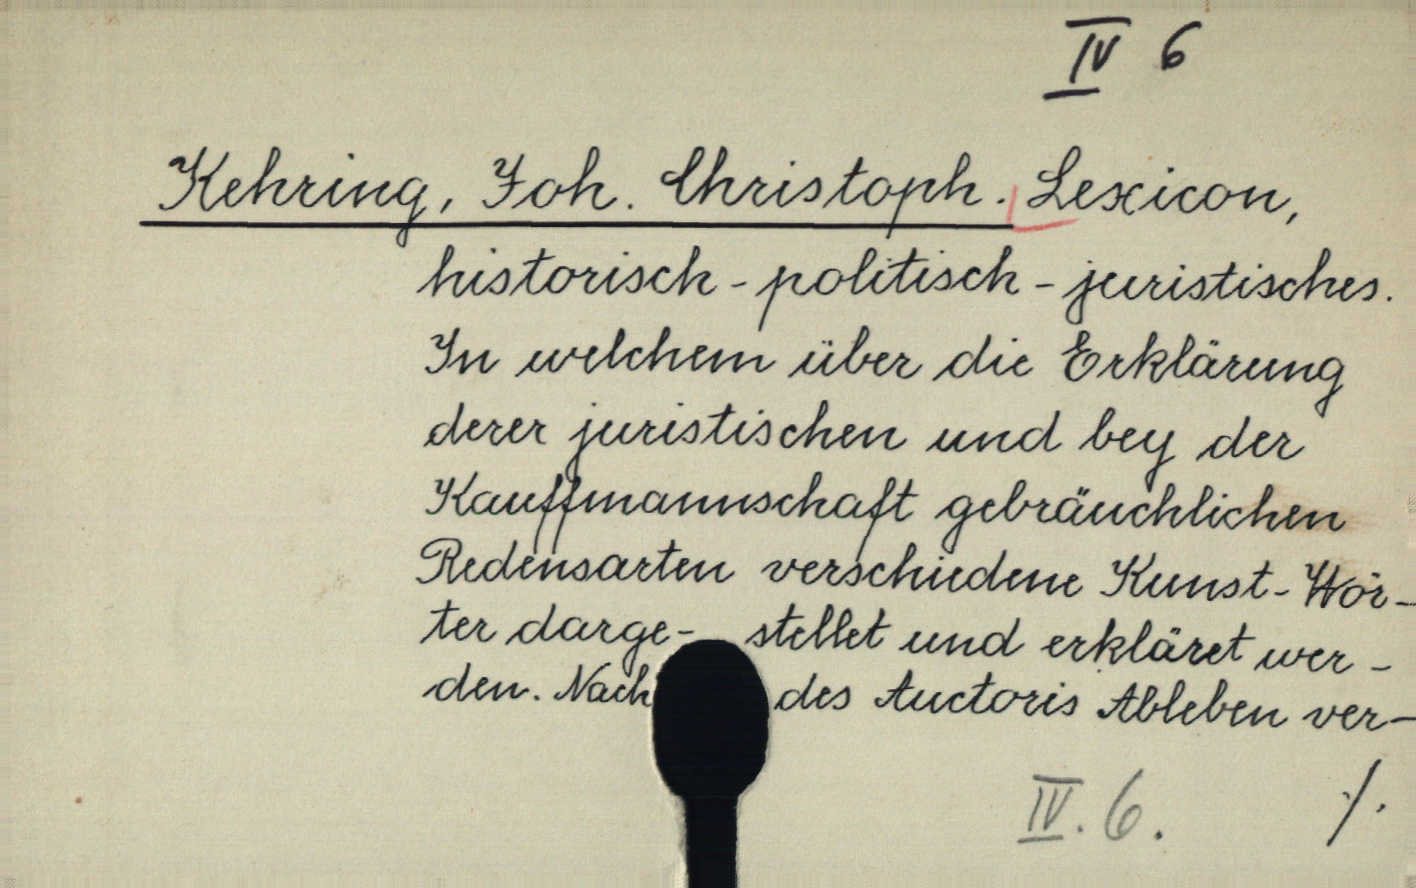 IV 6
Kehring, Joh. Christoph. Lexicon,
historisch-politisch-juristisches.
In welchem über die Erklärung
derer juristischen und bey der
Kauffmannschaft gebräuchlichen
Redensarten verschiedene Kunst-Wör-
ter darge- stellet und erkläret wer-
den. Nach des Auctoris Ableben ver-
IV. 6. ./.